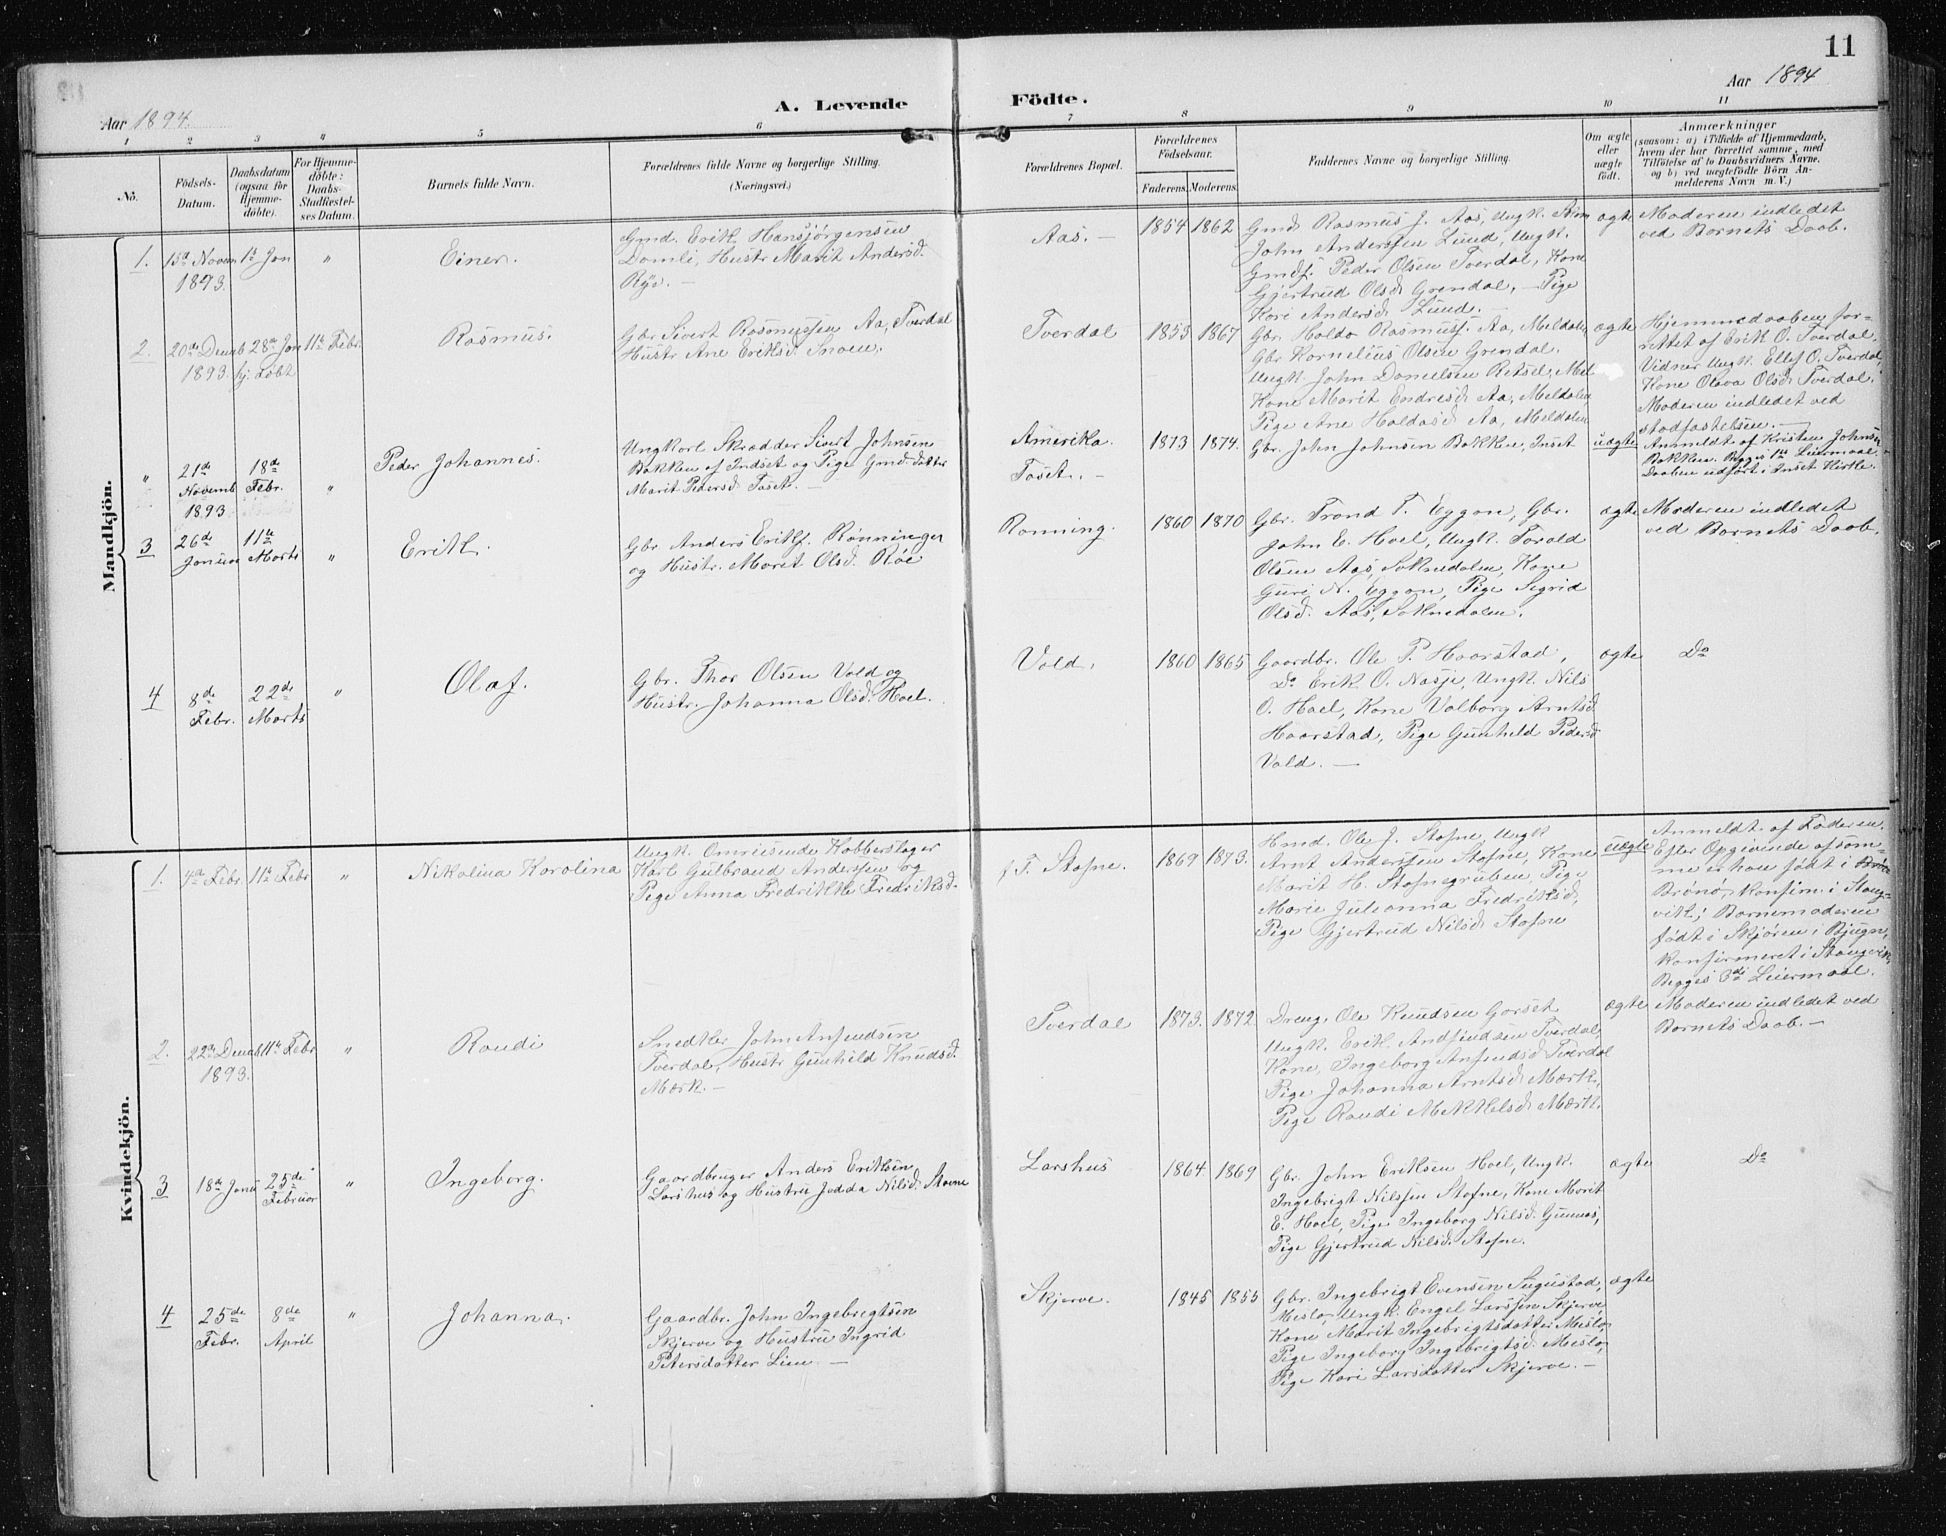 11
Aar 1894.
A. Levende Födte.
Aar 1894
1 2 3 4 5 6 7 8 9 10 11
No.
Födsels-
Datum.
Daabsdatum
(ogsaa for
Hjemme-
döbte).
For Hjemme-
döbte:
Daabs-
Stadfæstel-
ses Datum.
Barnets fulde Navn.
Forældrenes fulde Navne og borgerlige Stilling.
(Næringsvei.)
Forældrenes Bopæl.
Forældrenes
Födselsaar.
Faderens. Moderens.
Faddernes Navne og borgerlige Stilling.
Om ægte
eller
uægte
födt.
Anmærkninger
(saasom: a) i Tilfælde af Hjemmedaab,
hvem der har forrettet samme, med
Tilföielse af to Daabsvidners Navne,
og b) ved uægtefödte Börn An-
melderens Navn m. V.)
Mandkjön.
1.
15de Novem
1893.
1ste Jan
"
Einer.
Gmd. Erik Hansjørgensen
Domli, Hustr Marit Andersd.
Rye. —
Aas. —
1854 1862
Gmd Rasmus J. Aas, Ungk.
John Anderssen Lund, Ungk.
Gmdf. Peder Olsen Tverdal, Kone
Gjertrud Olsd Grendal, — Pige
Kari Andersd Lund.
ægte
Moderen indledet
ved Barnets Daab.
2.
20de Decemb
1893.
28de Jan
hj. døbt
11te Febr.
Rasmus.
Gbr Sivert Rasmussen Aa, Tverdal
Hustr Ane Eriksd. Snoen.
Tverdal
1853 1867
Gbr. Haldo Rasmusf. Aa, Meldalen,
Gbr Kornelius Olsen Grendal.
Ungk. John Danielsen Retsel, Mel
Kone Marit Endresd Aa, Meldalen,
Pige Ane Haldosd Aa, Meldalen
ægte
Hjemmedaaben for-
rettet af Erik O. Tverdal,
Vidner Ungk. Ellef O. Tverdal,
Kone Olava Olsd Tverdal.
Moderen indledet ved
stadfæstelsen. —
"
21de
Novemb
1893
18de
Febr.
"
Peder Johannes.
Ungkarl Skrædder Sivert Johnsen
Bakken af Indset og Pige Gmd. datter
Marit Pedersd. Toset. —
Amerika.
Toset. —
1873 1874.
Gbr. John Johnsen Bakken, Inset
uægte
Anmeldt af Kristen Johnsen
Bakken. Begges 1ste Leiermaal.
Daaben udført i Inset Kirke.
3
26de
Januar
11te
Marts
"
Erik.
Gbr Anders Erikf. Rønningen
og Hustr. Marit Olsd. Röe
Ronning.
1860 1870
Gbr. Trond T. Eggan, Gbr.
John E. Hoel, Ungk. Torald
Olsen Aas, Soknedalen, Kone
Guri N. Eggan, Pige Sigrid
Olsd. Aas, Soknedalen.
ægte
Moderen indledet
ved Barnets Daab.
4
8de
Febr.
22de
Marts
"
Olaf.
Gbr. Thor Olsen Vold og
Hustr. Johanna Olsd. Hoel.
Vold.
1860 1865
Gaardbr. Ole P. Haarstad,
Do Erik O. Nasje, Ungk. Nils
O. Hoel, Kone Valborg Arntsd
Haarstad, Pige Gunhild Pedersd
Vold. —
ægte
Do
Kvindekjön.
1.
4de Febr.
11te Febr
"
Nikolina Karolina
Ungk. Omreisende Kobberslager
Karl Gulbrand Anderssen og
Pige Anna Fredrikke Fredriksd.
f. T. Stofne.
1869 1873.
Hmd. Ole J. Stofne, Ungk
Arnt Anderssen Stofne, Kone
Marit H. Stofnegruben, Pige
Marie Julianna Fredriksd,
Pige Gjertrud Nilsd. Stofne
uægte
Anmeldt af Faderen.
Efter Opgivende af sam-
me er han født i
Brønø, konfirm. i Stang-
vik; Barnemoderen
født i Skjøren i Bjugn,
konfirmeret i Stangvik.
Begges 3die Leiermaal.
2.
22de Decemb
1893.
11te Febr
"
Randi
Snedker John Anfindsen
Tverdal, Hustr Gunhild Knudsd.
Mærk. —
Tverdal
1873. 1872
Dreng Ole Knudsen Gorset
Ungk. Erik Andfindsen Tverdal,
Kone, Ingeborg Anfindsd Tverdal
Pige Johanna Arntsd Mærk,
Pige Randi Mekkelsd Mærk.
ægte
Moderen indledet ved
Barnets Daab. —
3
18de Janu
25de
Februar
"
Ingeborg.
Gaardbruger Anders Eriksen
Larshus og Hustru Jodda Nilsd. Stavne
Larshus
1864 1869
Gbr. John Eriksen Hoel, Ungk.
Ingebrigt Nilssen Stofne, Kone Marit
E. Hoel, Pige Ingeborg Nilsd. Gunnes,
Pige Gjertrud Nilsd. Stofne.
ægte
Do
4
25de
Febr.
8de
April
"
Johanna.
Gaardbr. John Ingebrigtsen
Skjerve og Hustru Ingrid
Petersdatter Lien. —
Skjerve.
1845 1855
Gbr. Ingebrigt Evensen Sugustad,
Meslo, Ungk. Engel Larssen Skjerve,
Kone Marit Ingebrigtsdatter Meslo,
Pige Ingeborg Ingebrigtsd. Meslo,
Pige Kari Larsdatter Skjerve. —
ægte